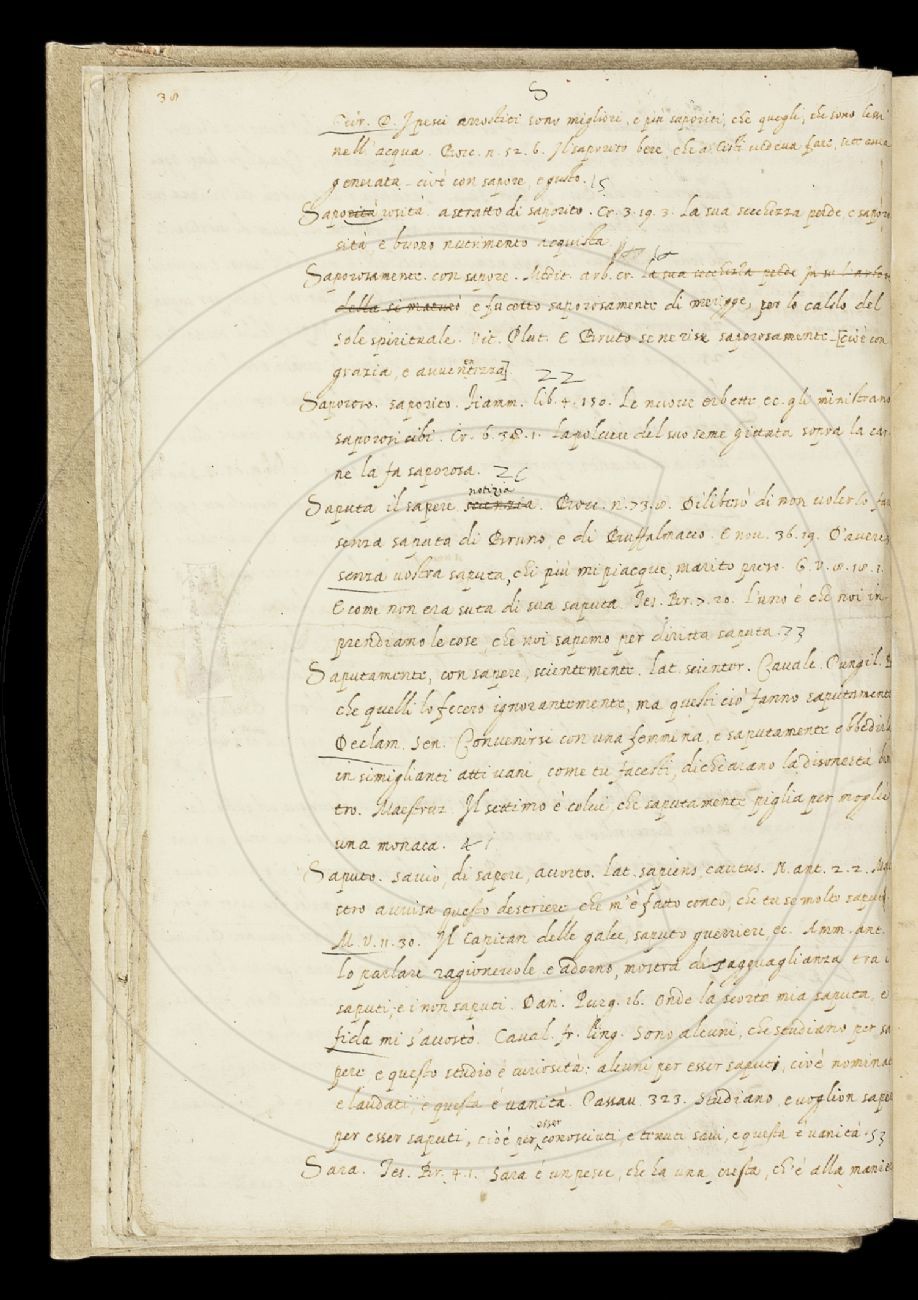 38
S
I pesci arrostiti sono migliori, e più saporiti, che quegli, che sono lessi
nell'acqua. Bocc. n. 52. 6. Il saporito bere, che a Cisti vedeva fare,
generata - cioè con sapore, e gusto. 15
Saporosità. astratto di saporito. Cr. 3. 19. 3. La sua secchezza perde, e saporo
sità e buono nutrimento acquista.
Saporosamente. con sapore. Medit. arb. cr. la sua secchezza perde
della si maturò e fu cotto saporosamente di meriggie, per lo caldo del
sole spirituale. Vit. Plut. E Bruto se ne rise saporosamente - [cioè con
grazia, e avvenentezza] 22
Saporoso. saporito. Fiamm. lib. 4. 150. Le nuove erbette ec. gli ministrano
saporosi cibi. Cr. 6. 38. 1. La polvere del suo seme gittata sopra la car
ne la fa saporosa.
Saputa il sapere scienzia notizia. Bocc. n. 73. Diliberò di non volerlo fare
senza saputa di Bruno, e di Buffalmacco. E nov. 36. 19. D'avere
senza vostra saputa, chi più mi piacque, marito preso. G. V. 8. 18. 1.
E come non era suta di sua saputa. Tes. Br. 7. 20. L'uno è che noi in
prendiamo le cose, che noi sapemo per diritta saputa. 23
Saputamente, con sapere, scientemente. lat. scienter. Cavalc. Pungil.
che quelli lo fecero ignorantemente, ma questi ciò fanno saputamente
Declam. Sen. Convenirsi con una femmina, e saputamente obbedirla
in simiglianti atti vani, come tu facesti, dichiarano la disonestà
tro. Maestruz. Il settimo è colui, che saputamente piglia per moglie
una monaca. 41
Saputo. savio, di sapere, accorto. lat. sapiens, cautus. N. ant. 2. 2.
stro avvisa questo destriere che m'è fatto conto, che tu se molto saputo.
M. V. 11. 30. Il Capitan delle galee, saputo guerriere, ec. Amm. ant.
lo parlare ragionevole e adorno, mostra disagguaglianza tra i
saputi, e i non saputi. Dan. Purg. 16. Onde la scorta mia saputa, e
fida mi s'accostò. Caval. fr. ling. Sono alcuni, che studiano per sa
pere, e questo studio è curiosità: alcuni per esser saputi, cioè nominati
e laudati, e questa è vanità. Passav. 323. Studiano, e voglion sapere
per esser saputi, cioè per esser conosciuti, e tenuti savi, e questa è vanità. 53
Sara. Tes. Br. 4. 1. Sara è un pesce, che ha una cresta, ch'è alla manie